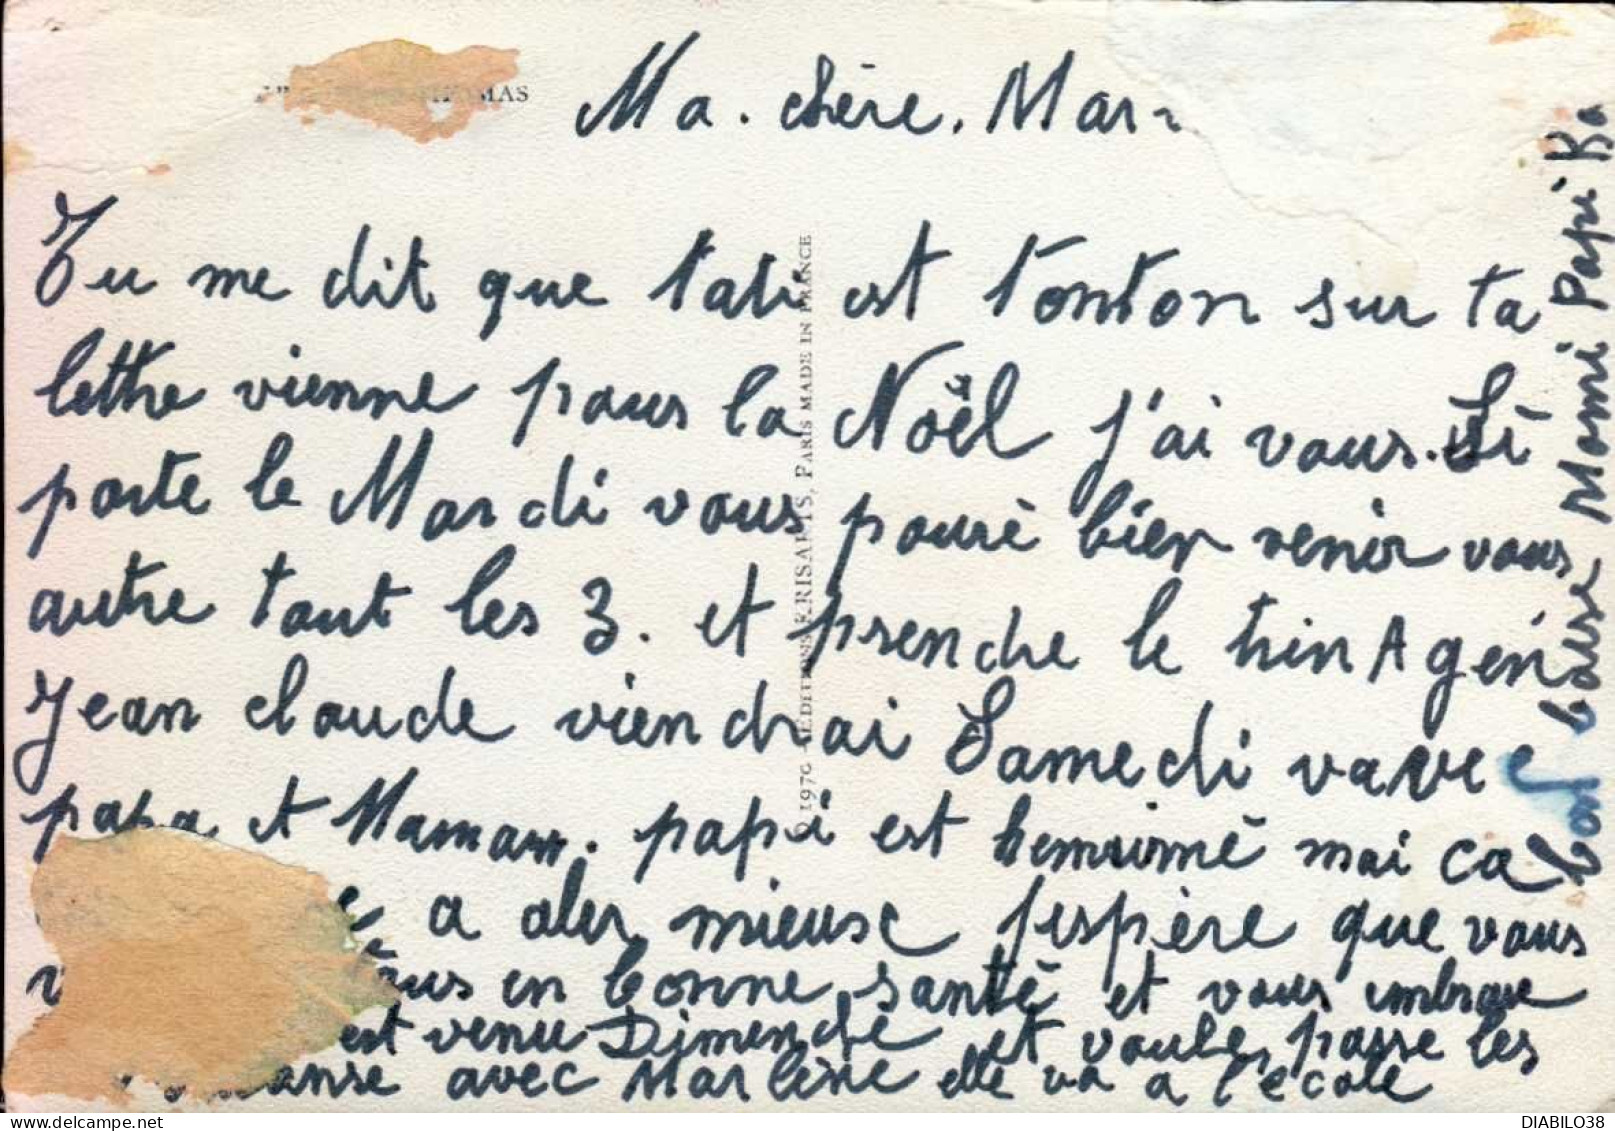 MAS
Ma. chère. Mar
Tu me dit que tati est tonton sur ta
lettre vienne pour la Noël j'ai vous. Si
porte le Mardi vous pourè bien venir vous
autre tout les 3. et prendre le trin Agen
Jean claude viendrai Samedi vavec
papa et Maman. papi est henrumé mai ca
a aler mieusc j'espère que vous
en bonne santé et vous embrase
est venu Dimenche et voule passe les
avec Marlène elle va a l'école
bon baise Mami Papi Ka
© 1970 EDITIONS KRISARTS, PARIS MADE IN FRANCE
DIABILO38